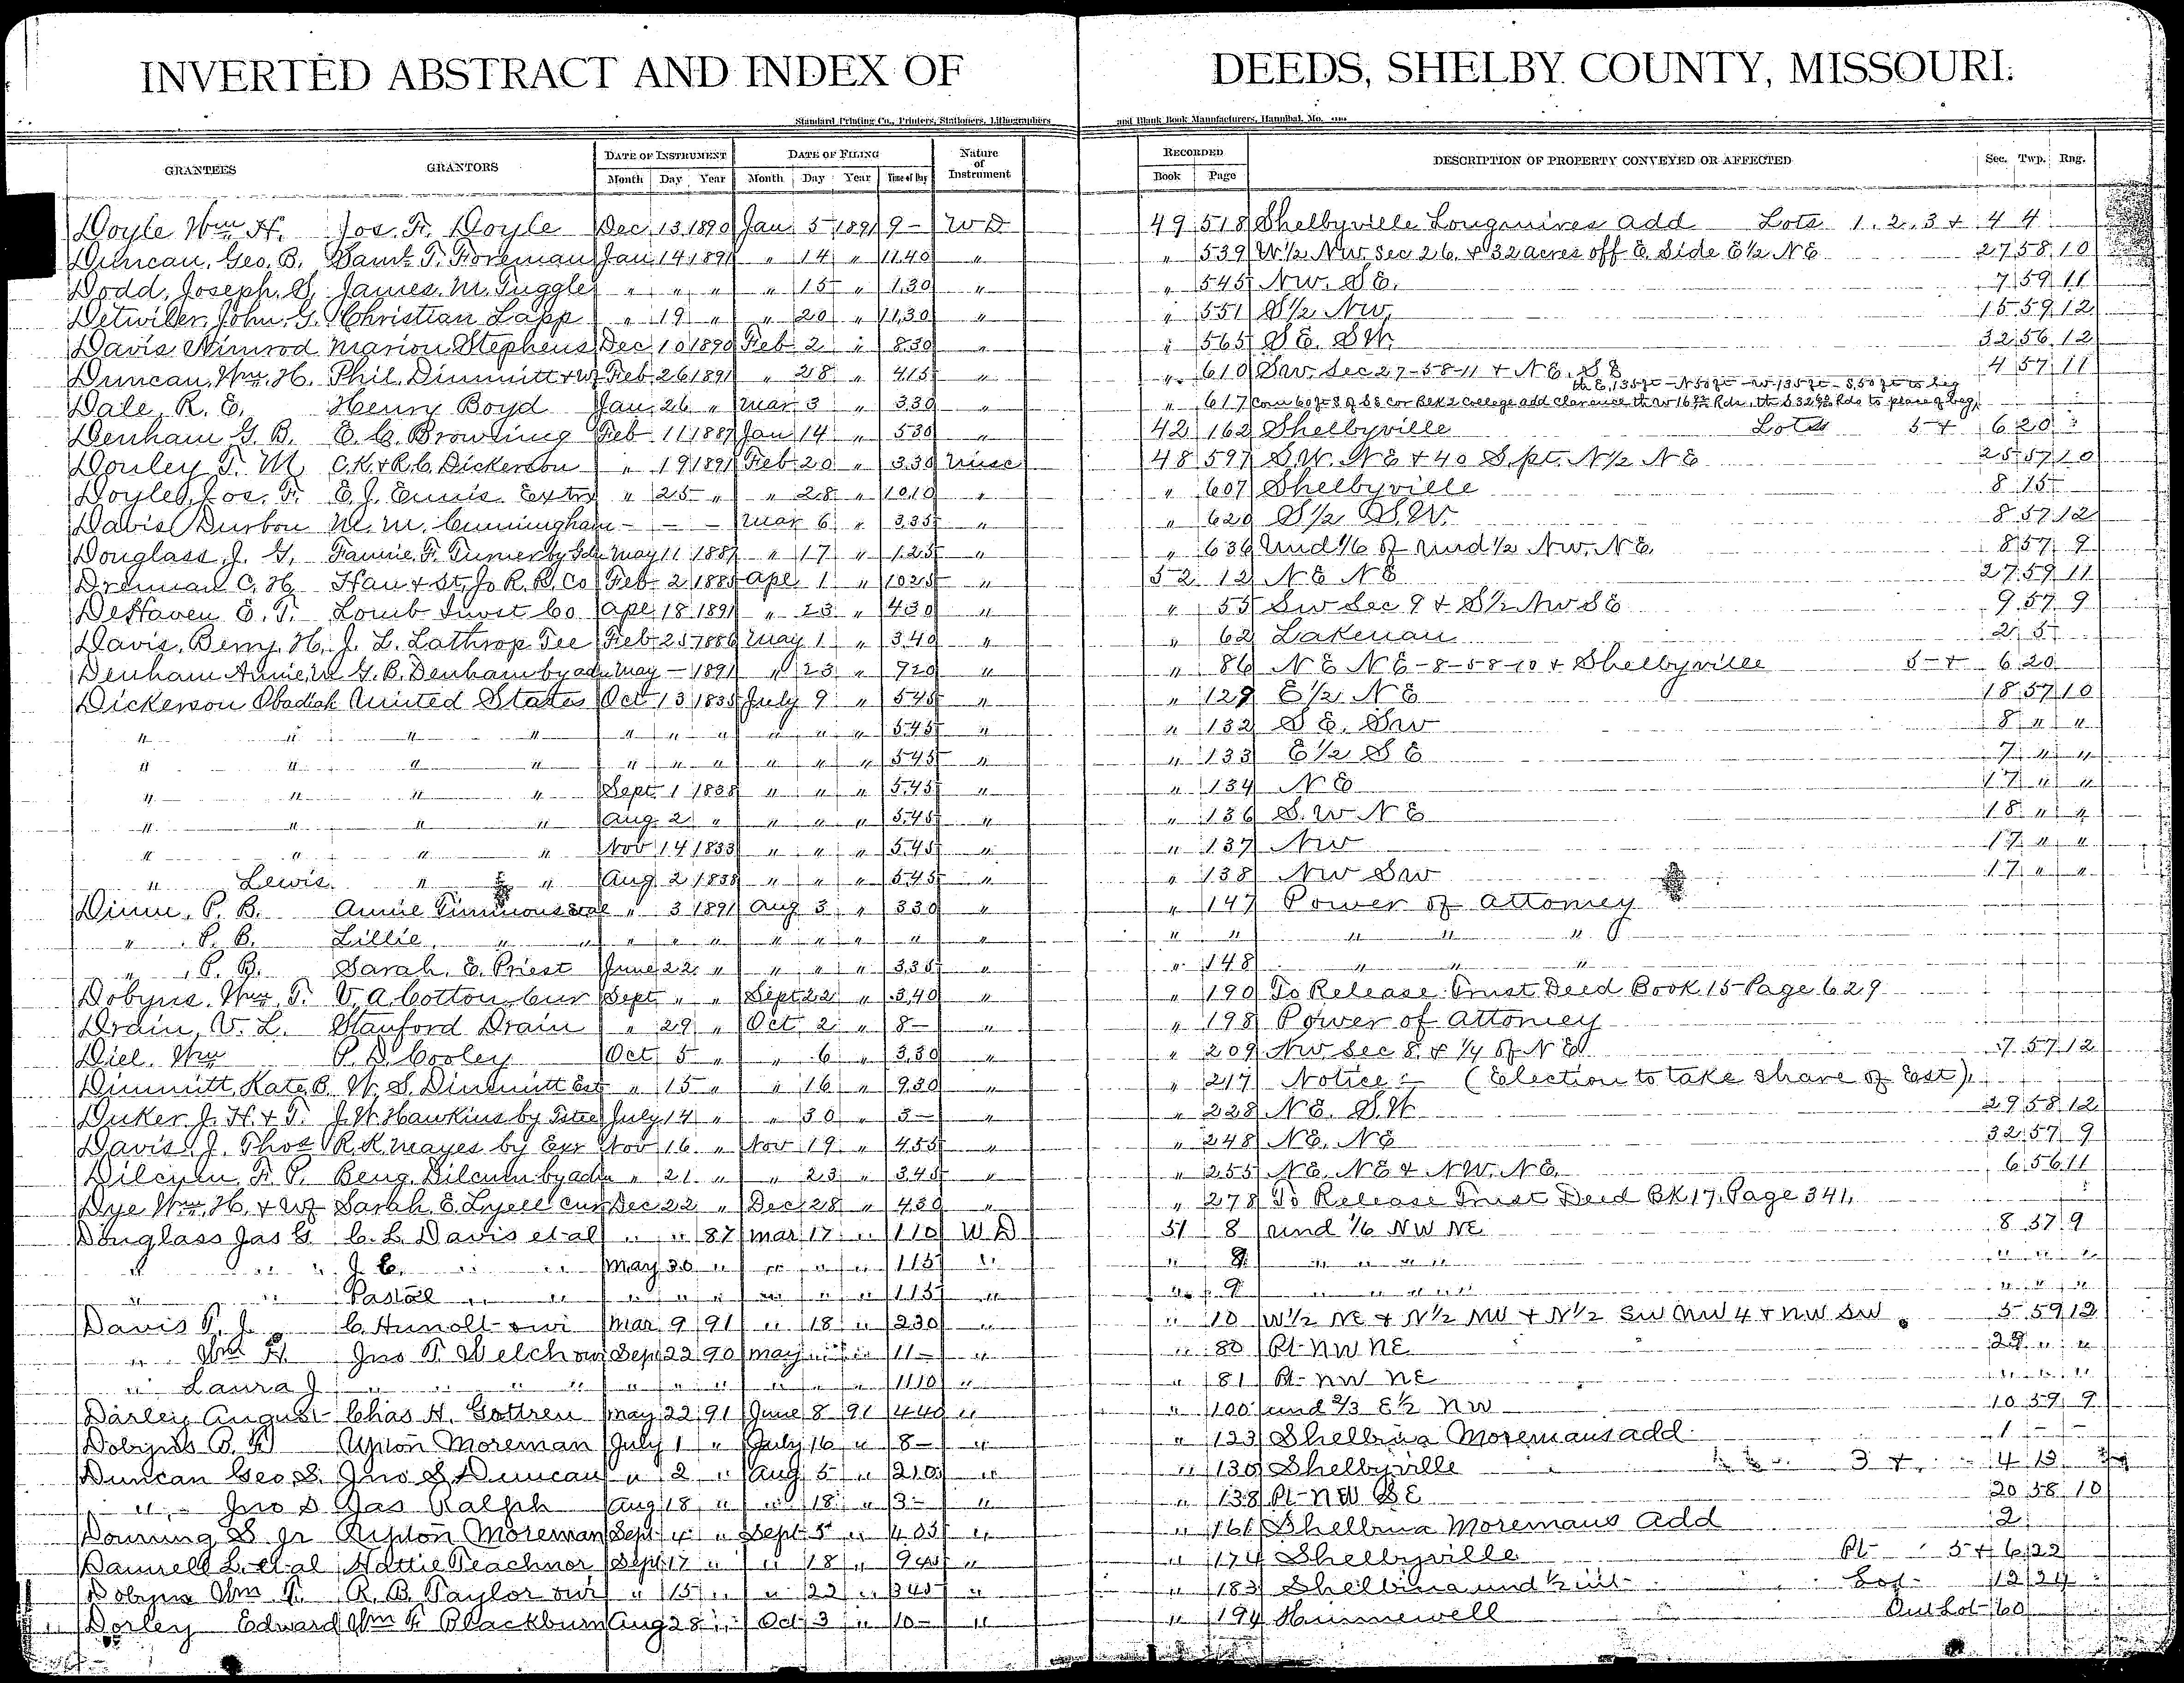 INVERTED ABSTRACT AND INDEX OF DEEDS, SHELBY COUNTY, MISSOURI.
Standard Printing Co., Printers, Stationers, Lithographers and Blank Book Manufacturers, Hannibal, Mo.
GRANTEES GRANTORS DATE OF INSTRUMENT DATE OF FILING Nature of Instrument RECORDED DESCRIPTION OF PROPERTY CONVEYED OR AFFECTED Sec. Twp. Rng.
Month Day Year Month Day Year Time of Day Book Page
Doyle Wm H. Jos. F. Doyle Dec 13 1890 Jan 5 1891 9- W D 49 518 Shelbyville Longmires add Lots 1. 2. 3 + 4 4
Duncan, Geo. B. Saml T. Foreman Jan 14 1891 " 14 " 1140 " " 539 W½ NW Sec 26. + 32 acres off E. Side E½ NE 27 58 10
Dodd, Joseph. S. James. M. Tuggle " " " " 15 " 130 " " 545 NW. SE. 7 59 11
Detwiler, John. G. Christian Lapp " 19 " " 20 " 1130 " " 551 S½ NW. 15 59 12
Davis Nimrod Marion Stephens Dec 10 1890 Feb 2 " 830 " " 565 SE. SW 32 56 12
Duncan, Wm. H. Phil. Dimmitt + wf Feb 26 1891 " 28 " 415 " " 610 SW. Sec 27-58-11 + NE. SE 4 57 11
th E, 135 ft - N 50 ft - W 135 ft - S, 50 ft to beg
Dale, R. E. Henry Boyd Jan 26 " Mar 3 " 330 " " 617 Com 60 ft S of SE cor Blk 2 College add Clarence th W 16 Rds, th S 32 Rds to place of beg.
Denham G. B. E. C. Browning Feb 11 1887 Jan 14 " 530 " 42 162 Shelbyville Lots 5 + 6 20
Donley T. M. C. K. + R. C. Dickerson " 19 1891 Feb 20 " 330 Misc 48 597 SW. NE + 40 S pt. N½ NE 25 57 10
Doyle, Jos. F. E. J. Ennis Extrx " 25 " " 28 " 1010 " " 607 Shelbyville 8 15
Davis Durbon M. M. Cunningham - - - Mar 6 " 335 " " 620 S½ SW. 8 57 12
Douglass, J. G. Fannie. F. Turner by Gdn May 11 1887 " 17 " 125 " " 636 Und 1/6 of Und ½ NW. NE. 8 57 9
Drennan C. H. Han + St. Jo R. R. Co Feb 2 1885 Apl 1 " 1025 " 52 12 NE NE 27 59 11
DeHaven E. T. Lomb Invst Co Apl 18 1891 " 23 " 430 " " 55 SW Sec 9 + S½ NW SE 9 57 9
Davis, Benj. H. J. L. Lathrop Tee Feb 25 1886 May 1 " 340 " " 62 Lakenan 2 5
Denham Annie M G. B. Denham by adm May - 1891 " 23 " 920 " " 86 NE NE-8-58-10 + Shelbyville 5 + 6 20
Dickerson Obadiah United States Oct 13 1835 July 9 " 545 " " 129 E½ NE 18 57 10
" " " " " " " " " " 545 " " 132 SE. SW 8 " "
" " " " " " " " " " 545 " " 133 E½ SE 7 " "
" " " " Sept 1 1838 " " " 545 " " 134 NE 17 " "
" " " " Aug 2 " " " " 545 " " 136 S. W NE 18 " "
" " " " Nov 14 1833 " " " 545 " " 137 NW 17 " "
" Lewis " " Aug 2 1838 " " " 545 " " 138 NW SW 17 " "
Dinn, P. B. Annie Timmons " 3 1891 Aug 3 " 330 " " 147 Power of attorney
" P. B. Lillie " " " " " " " " " " " " " " "
" P. B. Sarah. E. Priest June 22 " " " " 335 " " 148 " " "
Dobyns. Wm. T. V. A. Cotton Cur Sept " " Sept 22 " 340 " " 190 To Release Trust Deed Book 15 Page 629
Drain, V. L. Stanford Drain " 29 " Oct 2 " 8- " " 198 Power of attorney
Diel. Wm P. D. Cooley Oct 5 " " 6 " 330 " " 209 NW Sec 8 + ¼ of NE 17 57 12
Dimmitt, Kate. B. W. S. Dimmitt Est " 15 " " 16 " 930 " " 217 Notice :- (Election to take share of Est)
Duker J. H + T. J. W. Hawkins by Tstee July 14 " " 30 " 3- " " 228 NE. SW 29 58 12
Davis J. Thos R. K. Mayes by Exr Nov 16 " Nov 19 " 455 " " 248 NE. NE 32 57 9
Dilcum F. P. Benj. Dilcum by adm " 21 " " 23 " 345 " " 255 NE. NE + NW. NE. 6 56 11
Dye Wm. H. + wf Sarah. E. Lyell Cur Dec 22 " Dec 28 " 430 " " 278 To Release Trust Deed BK 17, Page 341,
Douglass Jas G. C. L. Davis et al " " 87 Mar 17 " 110 W D 51 8 und 1/6 NW NE 8 57 9
" " " J. C. " " May 30 " " " " 115 " " 8 " " " " " " "
" " Pastal " " " " " " " " 115 " " 9 " " " " " " "
Davis P. J. C. Hunolt + wi Mar 9 91 " 18 " 230 " " 10 W½ NE + N½ NW + N½ SW NW 4 + NW SW 5 59 12
" Wm H Jno T. Welch + wi Sep 22 90 May " " 11- " " 80 Pt- NW NE 29 " "
" Laura J " " " " " " " " " 1110 " " 81 Pt- NW NE " " "
Darley August Chas H. Gottren May 22 91 June 8 91 440 " " 100 und 2/3 E½ NW 10 59 9
Dobyns B. F. Upton Moreman July 1 " July 16 " 8- " " 123 Shelbina Moremans add 1 - -
Duncan Geo S. Jno S Duncan " 2 " Aug 5 " 210 " " 130 Shelbyville 3 + 4 13
" Jno S Jas Ralph Aug 18 " " 18 " 3- " " 138 Pt- NW SE 20 58 10
Downing S Jr Ripton Moreman Sept 4 " Sept 5 " 405 " " 161 Shelbina Moremans Add 2
Dannell L. et al Hattie Peachner Sept 17 " " 18 " 945 " " 174 Shelbyville Pt- 5 + 6 22
Dobyns Wm. T. R. B. Taylor + wi " 15 " " 22 " 345 " " 183 Shelbina und ½ int Lot- 12 24
Dorley Edward Wm F. Blackburn Aug 28 " Oct 3 " 10- " " 194 Hunnewell Out Lot- 60